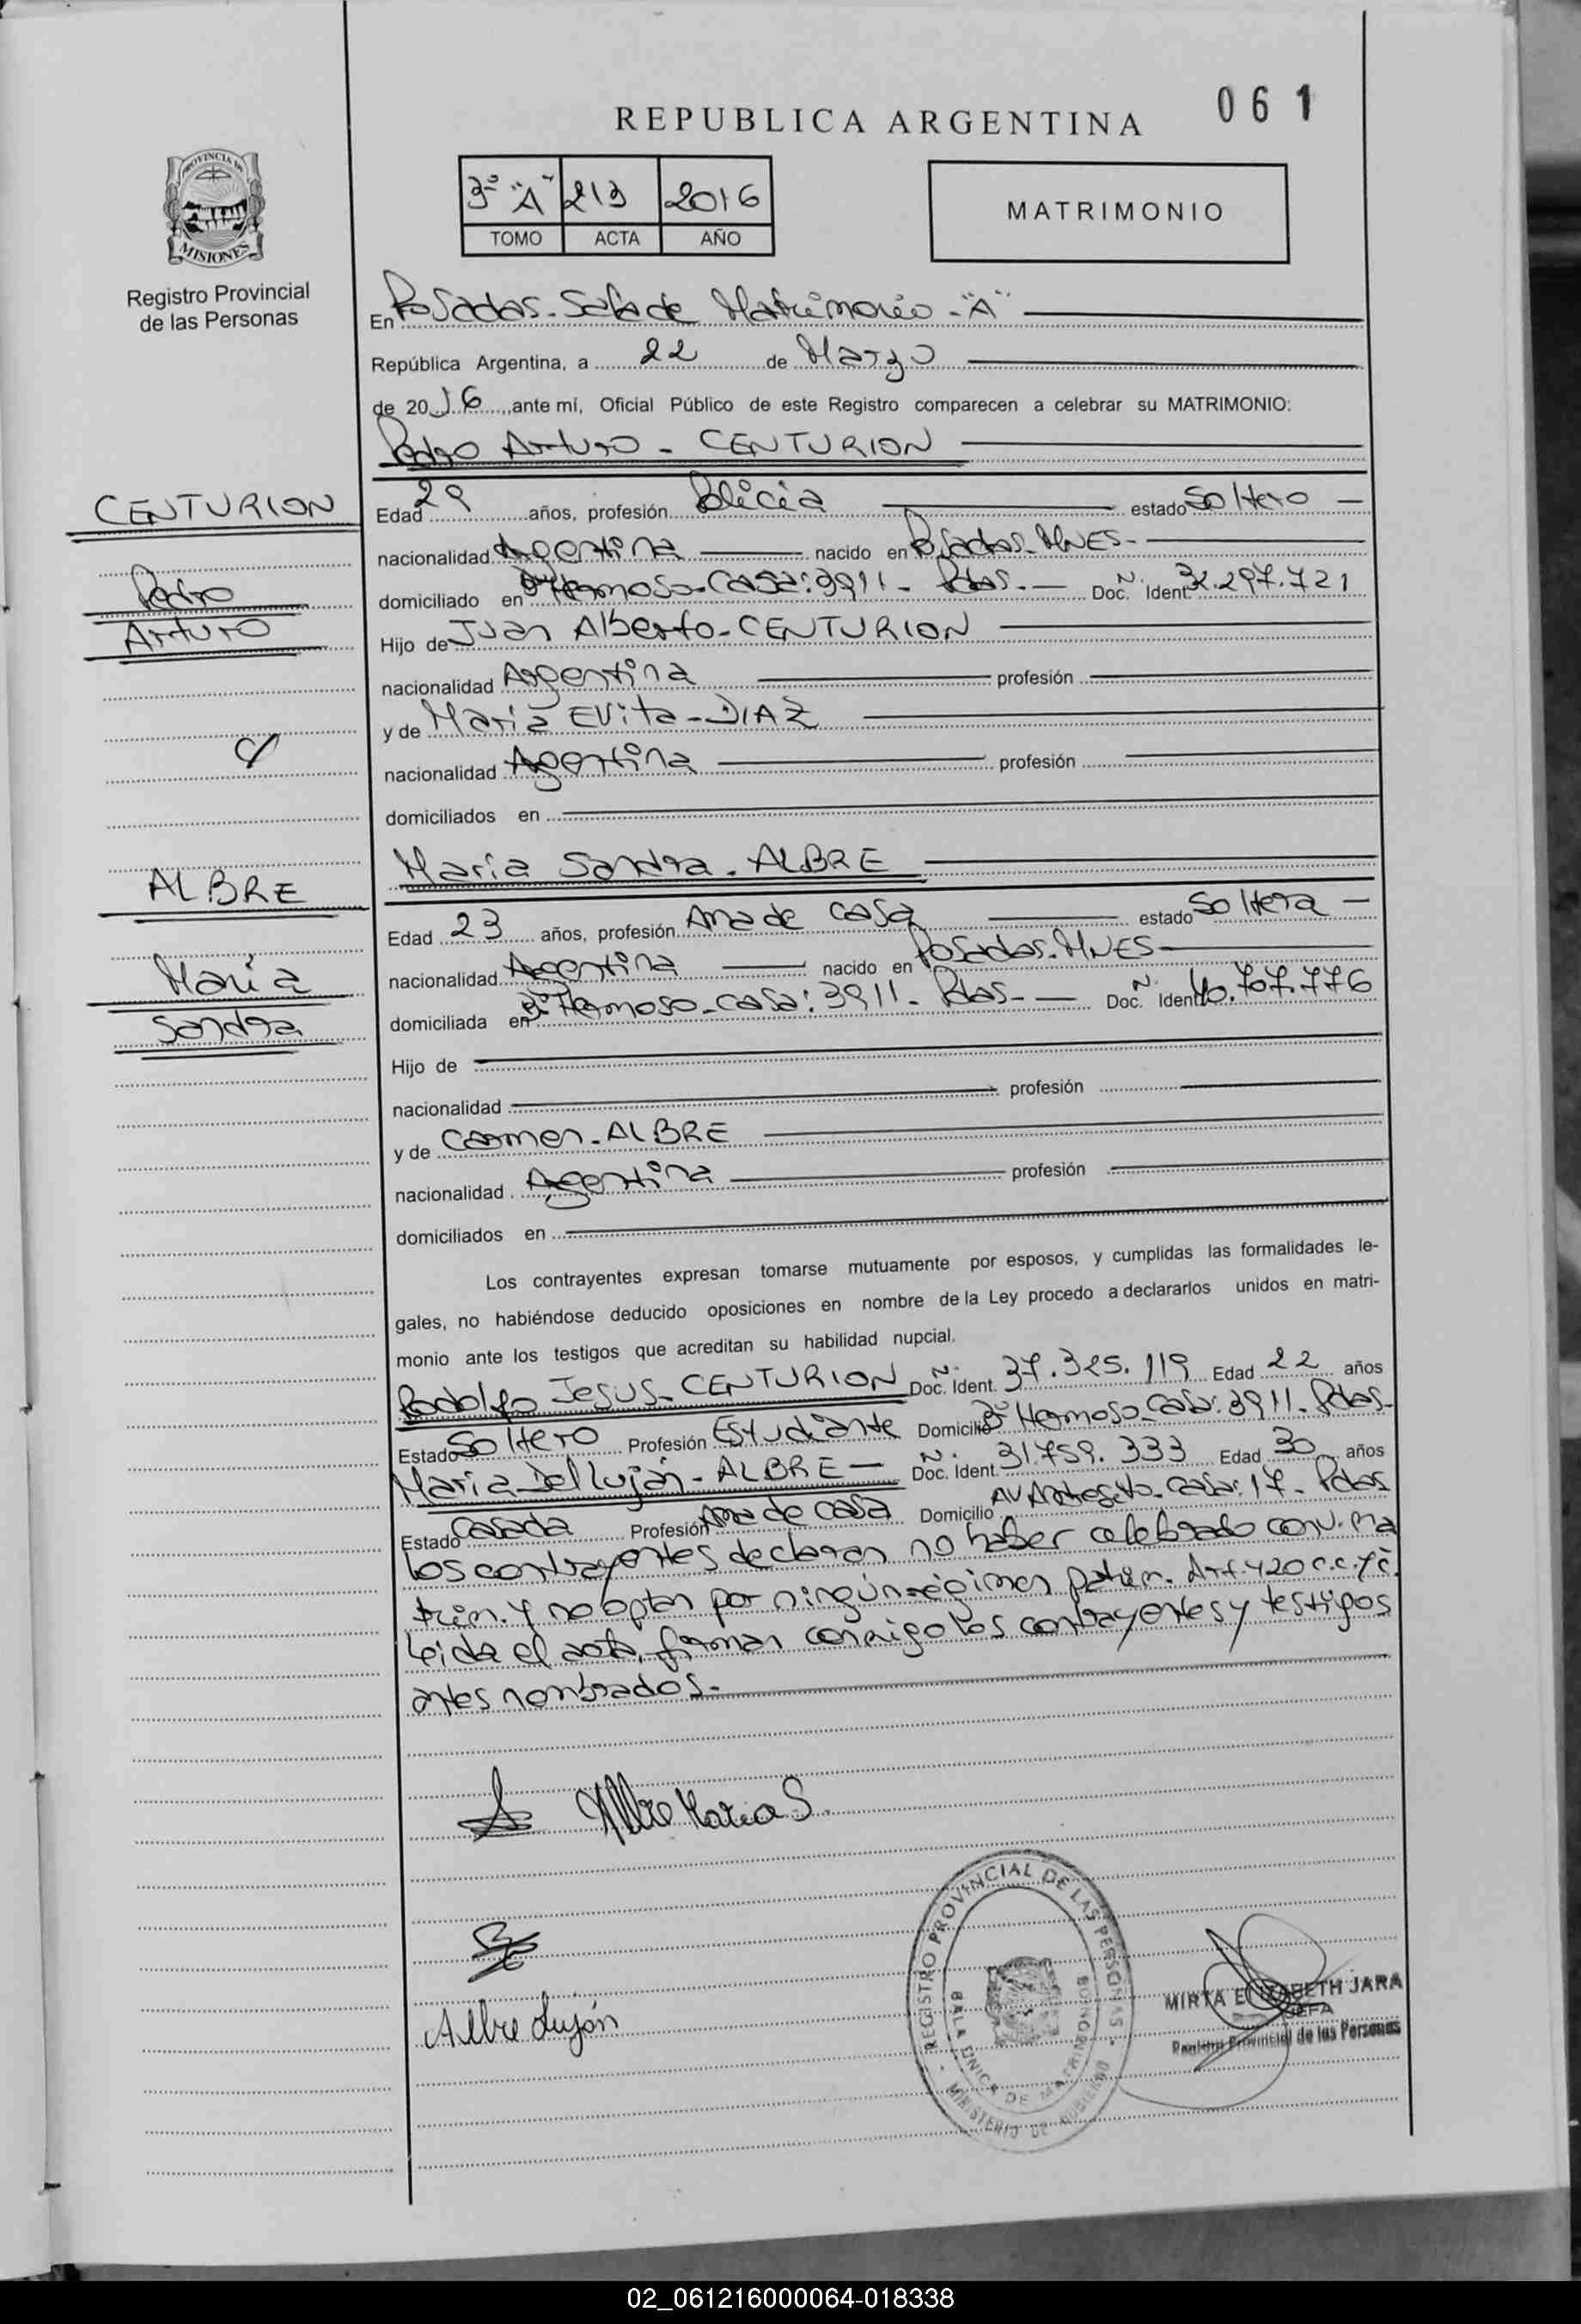 061
REPUBLICA ARGENTINA
PROVINCIA DE
MISIONES
Registro Provincial
de las Personas
3º "A" 213 2016
TOMO ACTA AÑO
MATRIMONIO
En Posadas - Sala de Matrimonio - "A"
República Argentina, a 22 de Marzo
de 2016 ante mí, Oficial Público de este Registro comparecen a celebrar su MATRIMONIO:
Pedro Arturo - CENTURION
CENTURION
Pedro
Arturo
Edad 29 años, profesión Policia estado Soltero -
nacionalidad Argentina nacido en Posadas. MNES-
domiciliado en Bº Hermoso - Casa: 3911 - Pdas. Doc. Ident Nº 32.297.721
Hijo de Juan Alberto - CENTURION
nacionalidad Argentina profesión
y de Maria Evita - DIAZ
nacionalidad Argentina profesión
domiciliados en
Maria Sandra - ALBRE
ALBRE
Maria
Sandra
Edad 23 años, profesión Ama de casa estado Soltera -
nacionalidad Argentina nacido en Posadas. MNES
domiciliada en Bº Hermoso - casa: 3911 - Pdas - Doc. Ident Nº 40.767.776
Hijo de
nacionalidad profesión
y de Carmen - ALBRE
nacionalidad Argentina profesión
domiciliados en
Los contrayentes expresan tomarse mutuamente por esposos, y cumplidas las formalidades le-
gales, no habiéndose deducido oposiciones en nombre de la Ley procedo a declararlos unidos en matri-
monio ante los testigos que acreditan su habilidad nupcial.
Rodolfo Jesus - CENTURION Doc. Ident. Nº 37.325.119 Edad 22 años
Estado Soltero Profesión Estudiante Domicilio Bº Hermoso - Casa: 3911 - Pdas-
Maria Del Luján - ALBRE - Doc. Ident. Nº 31.759.333 Edad 30 años
Estado Casada Profesión Ama de casa Domicilio AV. - Casa: 17 - Pdas
Los contrayentes declaran no haber celebrado conv. ma
trim. y no optan por ningún régimen patrim. Art. 420 c.c. y c.
Leida el acta, firman conmigo los contrayentes y testigos
antes nombrados.-
Albre Maria S.
Albre Luján
REGISTRO PROVINCIAL DE LAS PERSONAS
SALA UNICA DE MATRIMONIOS
MINISTERIO DE GOBIERNO
MIRTA ELIZABETH JARA
JEFA
Registro Provincial de las Personas
02_061216000064-018338